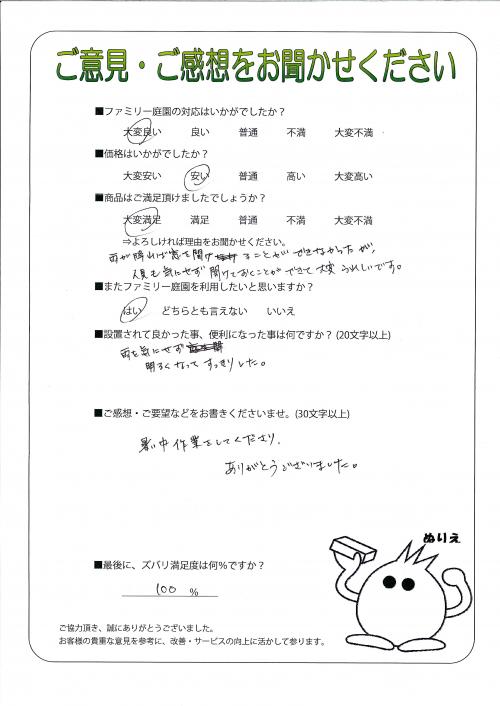 ご意見・ご感想をお聞かせください
■ファミリー庭園の対応はいかがでしたか?
大変良い 良い 普通 不満 大変不満
■価格はいかがでしたか?
大変安い 安い 普通 高い 大変高い
■商品はご満足頂けましたでしょうか?
大変満足 満足 普通 不満 大変不満
⇒よろしければ理由をお聞かせください。
雨が降れば窓を開けることができなかったが、
人目も気にせず開けておくことができて大変うれしいです。
■またファミリー庭園を利用したいと思いますか?
はい どちらとも言えない いいえ
■設置されて良かった事、便利になった事は何ですか?(20文字以上)
雨を気にせず
明るくなってすっきりした。
■ご感想・ご要望などをお書きくださいませ。(30文字以上)
暑い中作業をしてくださり、
ありがとうございました。
ぬりえ
■最後に、ズバリ満足度は何%ですか?
100 %
ご協力頂き、誠にありがとうございました。
お客様の貴重な意見を参考に、改善・サービスの向上に活かして参ります。